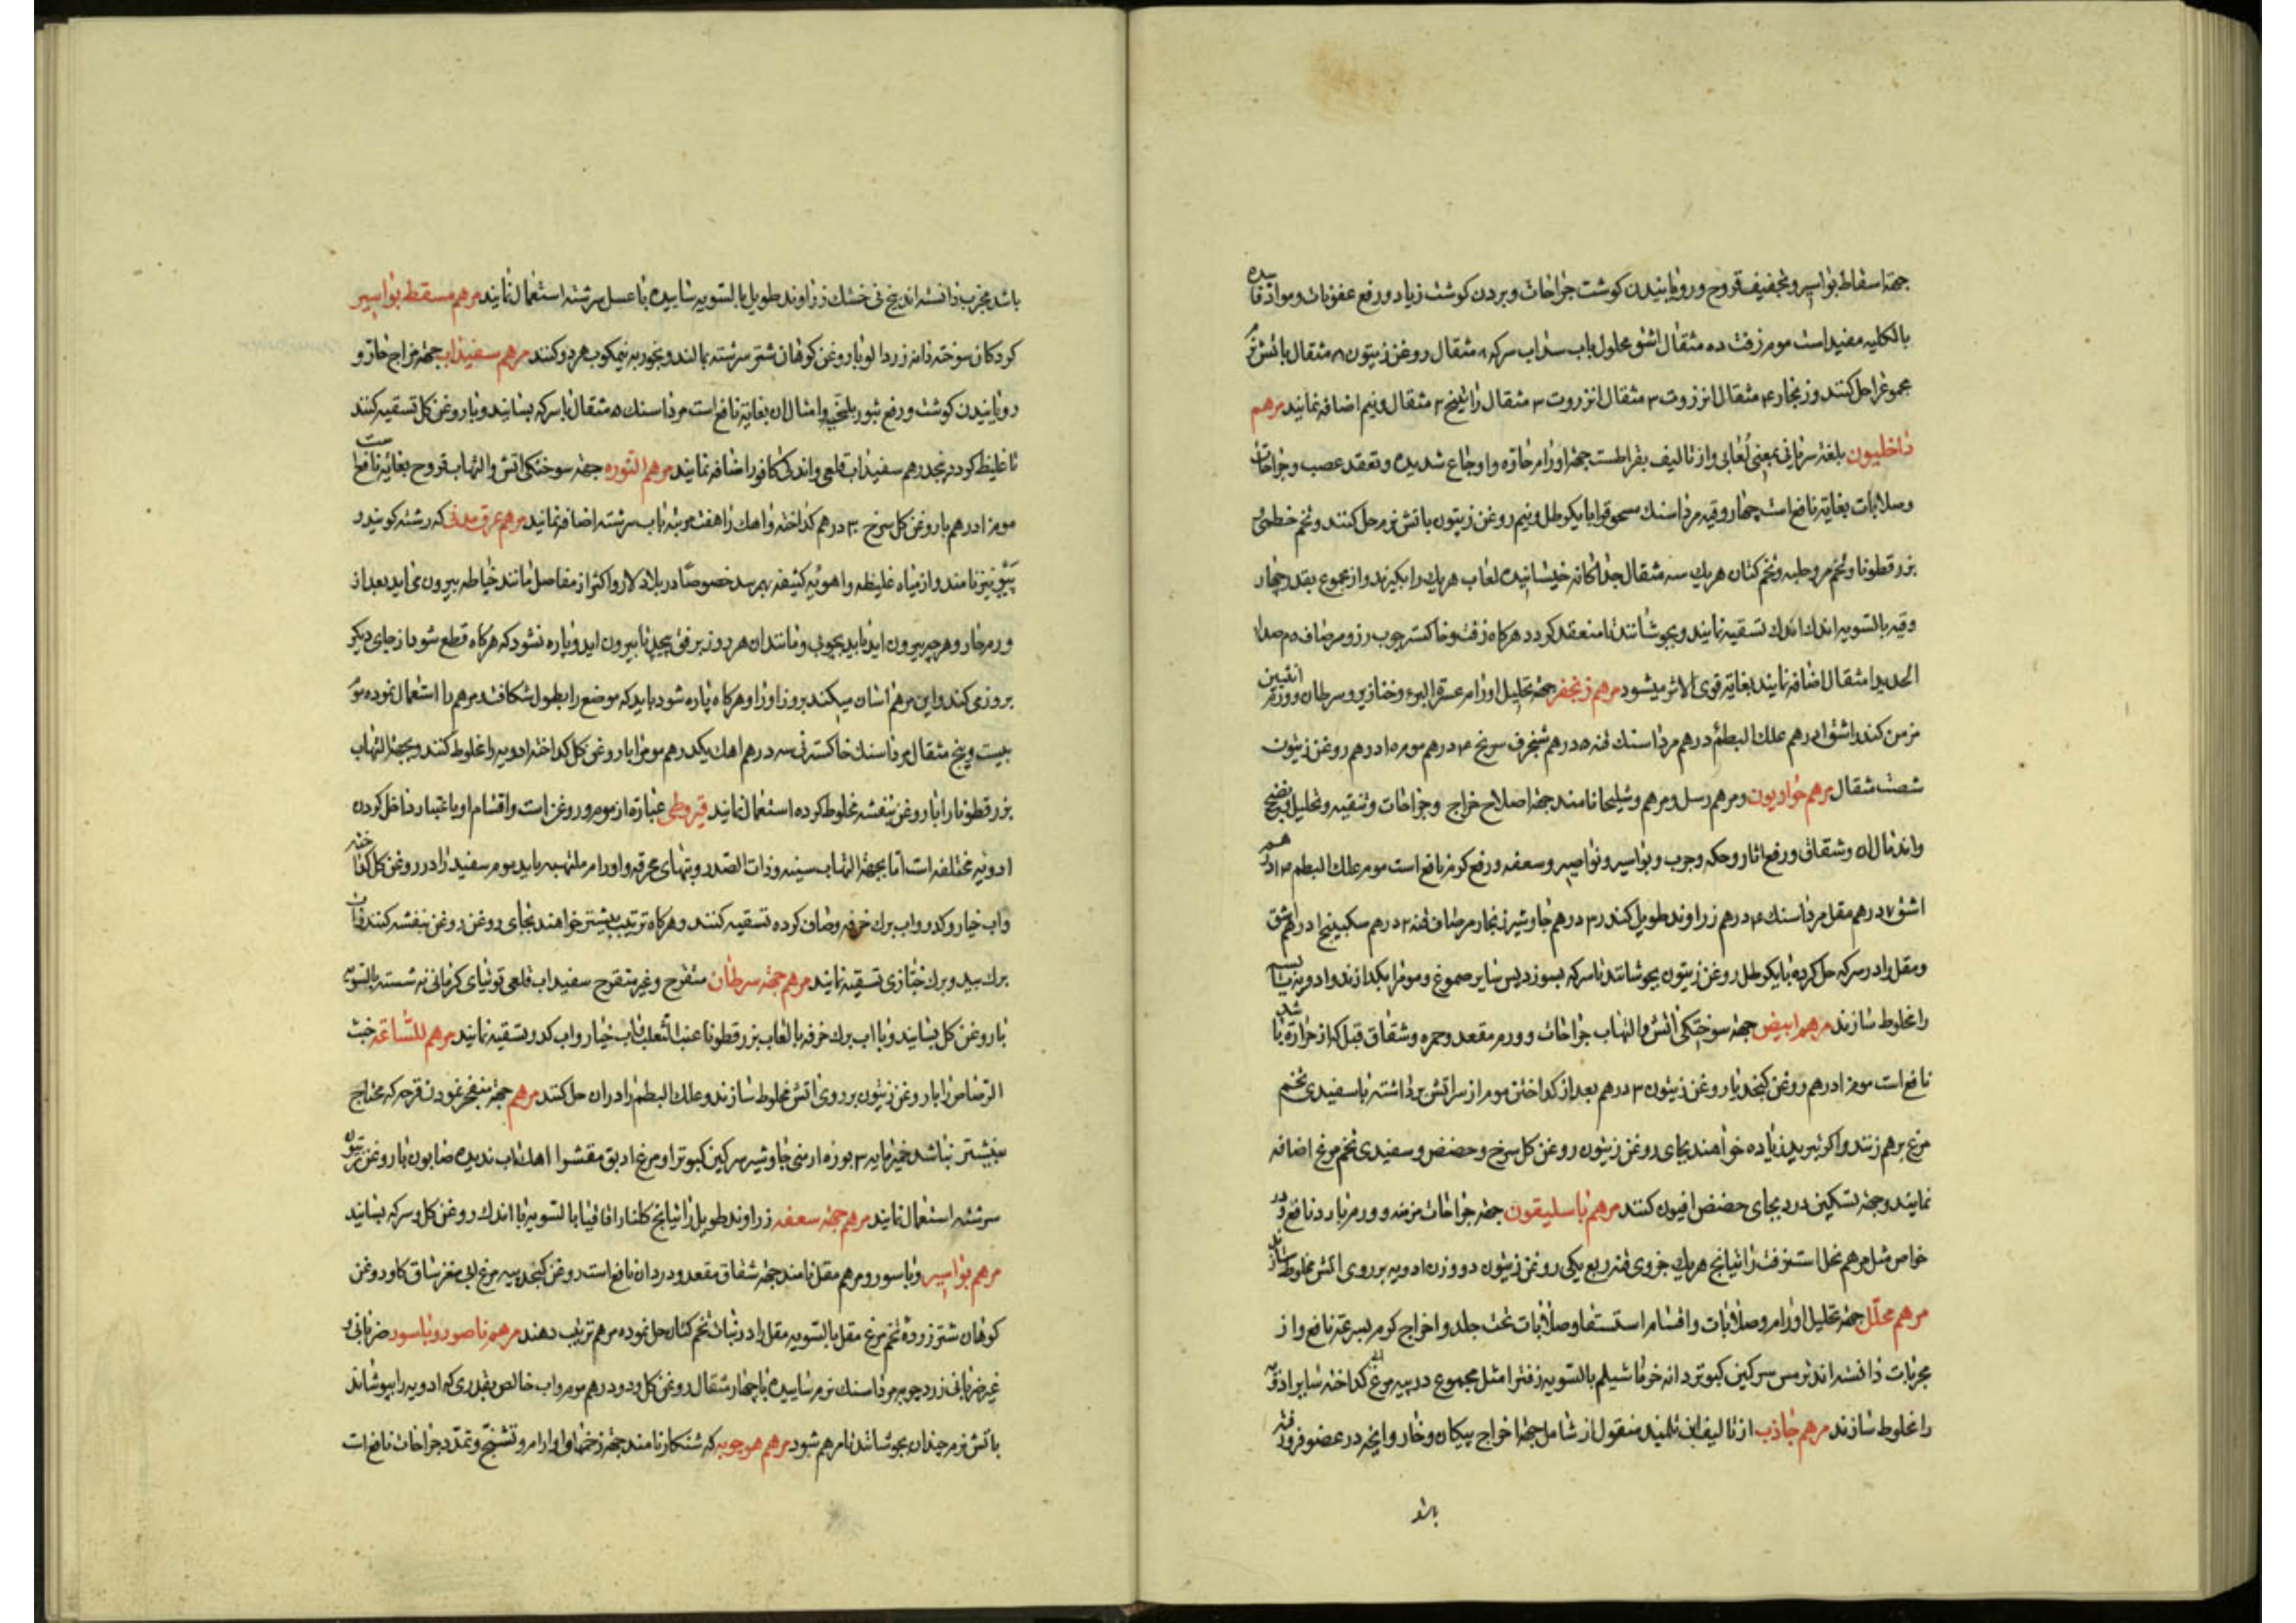 جهة اسقاط بواسیر و تجفیف قروح و رویانیدن کوشت جراحات و بردن کوشت زیاد و رفع عفونات و مواد فاسده
بالکلیه مفید است موم زفت ده مثقال اشق محلول باب سداب سرکه ۸ مثقال روغن زیتون ۸ مثقال باتش نرم
مجموع را حل کنند و زنجار ۴ مثقال انزروت ۳ مثقال راتینج ۲ مثقال و نیم اضافه نمایند مرهم
داخلیون بلغة سریانی بمعنی لعابی و از تالیف بقراطست جهة اورام حاره و اوجاع شدیده و تعقد عصب و جراحات
و صلابات بغایة نافع است چهار وقیه مرداسنک مسحوق را با یکرطل و نیم روغن زیتون باتش نرم حل کنند و تخم خطمی و
بزرقطونا و تخم مرو حلبه و تخم کتان هر یک سه مثقال جداکانه خیسانیده لعاب هر یک را بکیرند و از مجموع بقدر چهار
وقیه بالسویه اندک اندک تسقیه نمایند و بجوشانند تا منعقد کردد هرکاه زفت و خاکستر چوب رز و مر صاف
الحدید ۱ مثقال اضافه نمایند بغایة قوی الاثر میشود مرهم زنجفر جهة تحلیل اورام عسرة البرء و خنازیر و سرطان و ورم انثیین
مزمن کندر اشق درهم علک البطم درهم مرداسنک قنه ۵ درهم شنجرف سرنج ۴ درهم موم ۱۵ درهم روغن زیتون
شصت مثقال مرهم حواریون و مرهم رسل و مرهم و شلیحا نامند جهة اصلاح خراج و جراحات و تنقیه و تحلیل و نضج
و اندمال ان و شقاق و رفع اثار و حکه و جرب و بواسیر و نواصیر و سعفه و رفع کرم نافع است موم علک البطم
اشق ۷ درهم مقل مرداسنک ۴ درهم زراوند طویل کندر ۳ درهم جاوشیر زنجار مر صاف قنه ۲ درهم سکبینج ۱ درهم اشق
و مقل را در سرکه حل کرده با یکرطل روغن زیتون بجوشانند تا سرکه بسوزد پس سایر صموغ و موم را بکدازند و ادویه یابسه
را مخلوط سازند مرهم ابیض جهة سوختکی اتش و التهاب جراحات و ورم مقعد و حمره و شقاق قبل که از حرارة باشد
نافع است موم ۱ درهم روغن کنجد یا روغن زیتون ۳ درهم بعد از کداختن موم از سر اتش برداشته با سفیدی تخم
مرغ برهم زنند و اکر تبرید زیاده خواهند بجای روغن زیتون روغن کل سرخ و حضض و سفیدی تخم مرغ اضافه
نمایند و جهة تسکین درد بجای حضض افیون کنند مرهم باسلیقون جهة جراحات مزمنه و ورم بارد نافع و در
خواص مثل مرهم نحل است زفت راتیانج هر یک جزوی قنه ربع یکی روغن زیتون دو وزن ادویه بر روی اتش مخلوط سازند
مرهم محلّل جهة تحلیل اورام و صلابات و اقسام استسقا و صلابات تحت جلد و اخراج کرم بسرعة نافع و از
مجربات دانسته اند ترمس سرکین کبوتر دانه خرما شیلم بالسویه زفت را مثل مجموع در پیه مرغ ابی کداخته سایر ادویه
را مخلوط سازند مرهم جاذب از تالیف ابن تلمیذ منقول از شامل جهة اخراج پیکان و خار و انچه در عضو فرو رفته
باشد
باشد مجرب دانسته اند بیخ نی خشک زراوند طویل بالسویه ساییده با عسل سرشته استعمال نمایند مرهم مسقط بواسیر
کردکان سوخته دانه زردالو با روغن کوهان شتر سرشته بمالند و بخور به نیمکوب هر دو کنند مرهم سفیداب جهة مزاج حار و
رویانیدن کوشت و رفع بثور بلخی و امثال ان بغایة نافع است مرداسنک ۵ مثقال با سرکه بسایند و با روغن کل تسقیه کنند
تا غلیظ کردد پنجدرهم سفیداب قلعی و اندکی کافور اضافه نمایند مرهم النوره جهة سوختکی اتش و التهاب قروح بغایة نافع است
موم ۱ درهم با روغن کل سرخ ۳ درهم کداخته و اهک را هفت مرتبه باب سرشته اضافه نمایند مرهم عرق مدنی که رشته کویند و
پیو نیز نامند و از میاه غلیظه و اهویه کثیفه بهم رسد خصوصا در بلاد لار و اکثر از مفاصل مانند خیاطه بیرون می اید بعد از
ورم حار و هر چه بیرون اید باید بچوبی و مانند ان هر روز برفق پیچید تا بیرون اید و پاره نشود که هرکاه قطع شود از جای دیکر
بروز می کند و این مرهم اسان میکند بروز او را و هرکاه پاره شود باید که موضع را بطول شکافند مرهم را استعمال نمود موم
بیست و پنج مثقال مرداسنک خاکستر نی سه درهم اهک یکدرهم موم را با روغن کل کداخته ادویه را مخلوط کنند و بجهة التهاب
بزرقطونا را با روغن بنفشه مخلوط کرده استعمال نمایند قیروطی عبارة از موم و روغن است و اقسام او باعتبار داخل کردن
ادویه مختلفه است اما بجهة التهاب سینه و ذات الصدر و تبهای محرقه و اورام ملتهبه باید موم سفید را در روغن کل کداخته
و اب خیار و کدو و اب برک خرفه و صاف کرده تسقیه کنند و هرکاه ترتیب بیشتر خواهند بجای روغن روغن بنفشه کنند و اب
برک بید و برک خبازی تسقیه نمایند مرهم جهة سرطان متقرح و غیر متقرح سفیداب قلعی توتیای کرمانی نه شسته بالسویه
با روغن کل بسایند و با اب برک خرفه یا لعاب بزرقطونا عنب الثعلب اب خیار و اب کدو تسقیه نمایند مرهم للساعه خبث
الرصاص را با روغن زیتون بر روی اتش مخلوط سازند و علک البطم را در ان حل کنند مرهم جهة منفجر نمودن قرحه که محتاج
بنیشتر نباشد خمیرمایه ۳ بوره ارمنی جاوشیر سرکین کبوتر او مرغ دبق مقشر اهک اب ندیده صابون با روغن زیتون
سرشته استعمال نمایند مرهم جهة سعفه زراوند طویل راتیانج کلنار اقاقیا بالسویه با اندک روغن کل و سرکه بسایند
مرهم بواسیر و باسور و مرهم مقل نامند جهة شقاق مقعد و درد ان نافع است روغن کنجد پیه مرغ ابی مغز ساق کاو روغن
کوهان شتر زرده تخم مرغ مقل بالسویه مقل را در نبات تخم کتان حل نموده مرهم ترتیب دهند مرهم ناصور و باسور ضربانی و
غیر ضربانی زردچوبه مرداسنک نرم ساییده با چهار مثقال روغن کل و دو درهم موم و اب خالص بقدری که ادویه را بپوشاند
باتش نرم چندان بجوشانند تا مرهم شود مرهم هوچوبه که شنکار نامند جهة زخمها و اورام و تشنج و تمدد جراحات نافع است